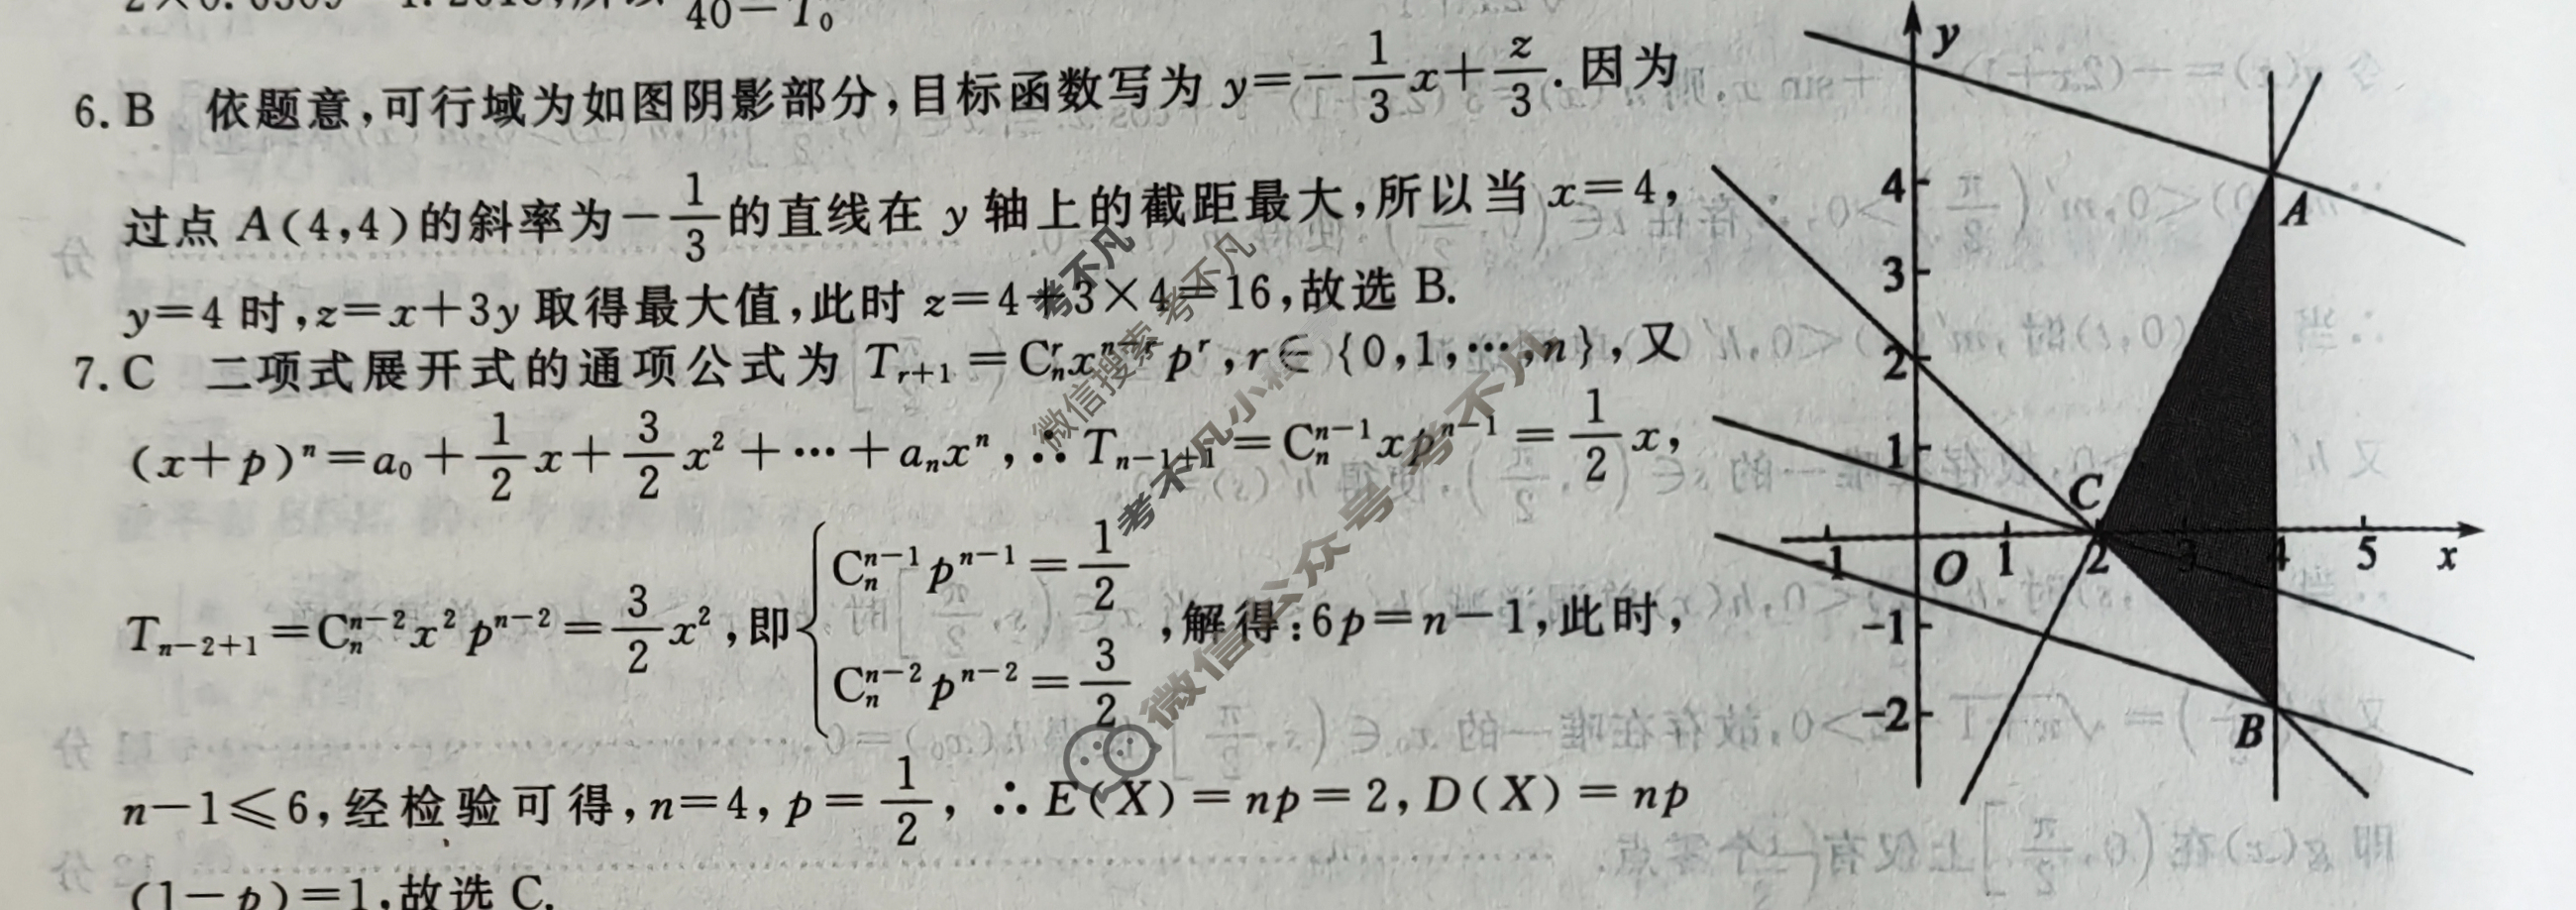 40－T₀
6. B 依题意,可行域为如图阴影部分,目标函数写为 y=－1/3x+z/3. 因为
过点 A(4,4)的斜率为－1/3的直线在 y 轴上的截距最大,所以当 x=4,
y=4 时,z=x+3y 取得最大值,此时 z=4+3×4=16,故选 B.
7. C 二项式展开式的通项公式为 Tᵣ₊₁=Cₙʳxⁿ⁻ʳpʳ,r∈{0,1,…,n},又
(x+p)ⁿ=a₀+1/2x+3/2x²+…+aₙxⁿ,∴Tₙ₋₁₊₁=Cₙⁿ⁻¹xpⁿ⁻¹=1/2x,
Tₙ₋₂₊₁=Cₙⁿ⁻²x²pⁿ⁻²=3/2x²,即{Cₙⁿ⁻¹pⁿ⁻¹=1/2
Cₙⁿ⁻²pⁿ⁻²=3/2 ,解得:6p=n－1,此时,
n－1≤6,经检验可得,n=4,p=1/2, ∴E(X)=np=2,D(X)=np
(1－p)=1,故选 C.
y
4
A
3
2
1
C
-1 O 1 2 3 4 5 x
-1
-2
B
考不凡
考不凡
微信搜索
考不凡小程
微信公众号 考不凡